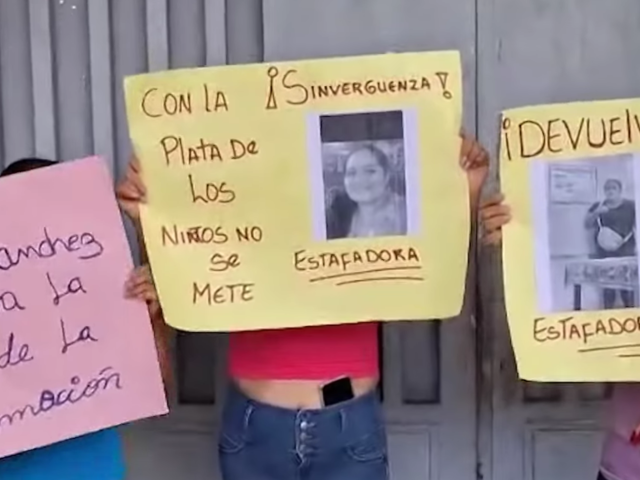 anchez
a La
de La
moción
CON LA
PLATA DE
LOS
NIÑOS NO
Se
METE
¡SINVERGUENZA!
ESTAFADORA
¡DEVUELV
ESTAFADOR